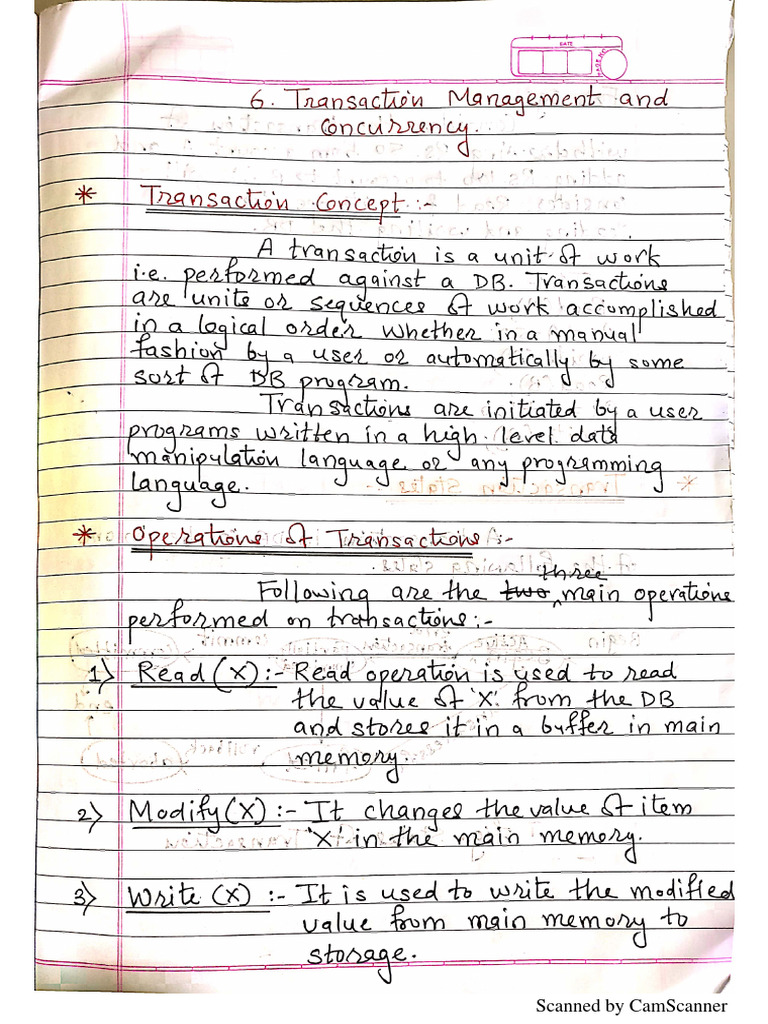 DATE
PAGE NO.
6. Transaction Management and
Concurrency.
* Transaction Concept :-
A transaction is a unit of work
i.e. performed against a DB. Transactions
are units or sequences of work accomplished
in a logical order whether in a manual
fashion by a user or automatically by some
sort of DB program.
Transactions are initiated by a user
programs written in a high level data
manipulation language or any programming
language.
* Operations of Transactions :-
three
Following are the two ^ main operations
performed on transactions:-
1) Read (X) :- Read operation is used to read
the value of 'X' from the DB
and stores it in a buffer in main
memory.
2) Modify(X) :- It changes the value of item
'X' in the main memory.
3) Write (X) :- It is used to write the modified
value from main memory to
storage.
Scanned by CamScanner